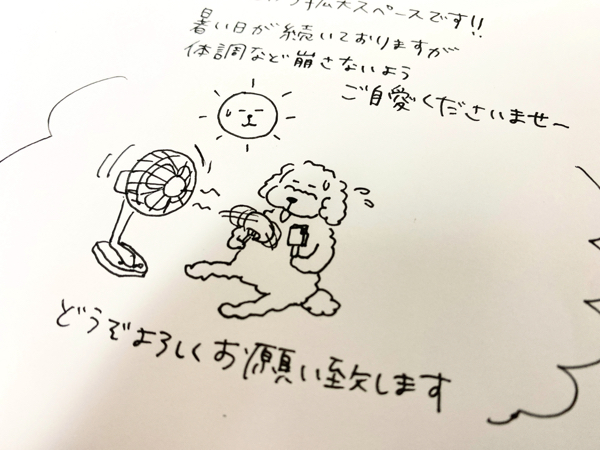 拡大スペースです!!
暑い日が続いておりますが
体調など崩さないよう
ご自愛くださいませー
どうぞよろしくお願い致します